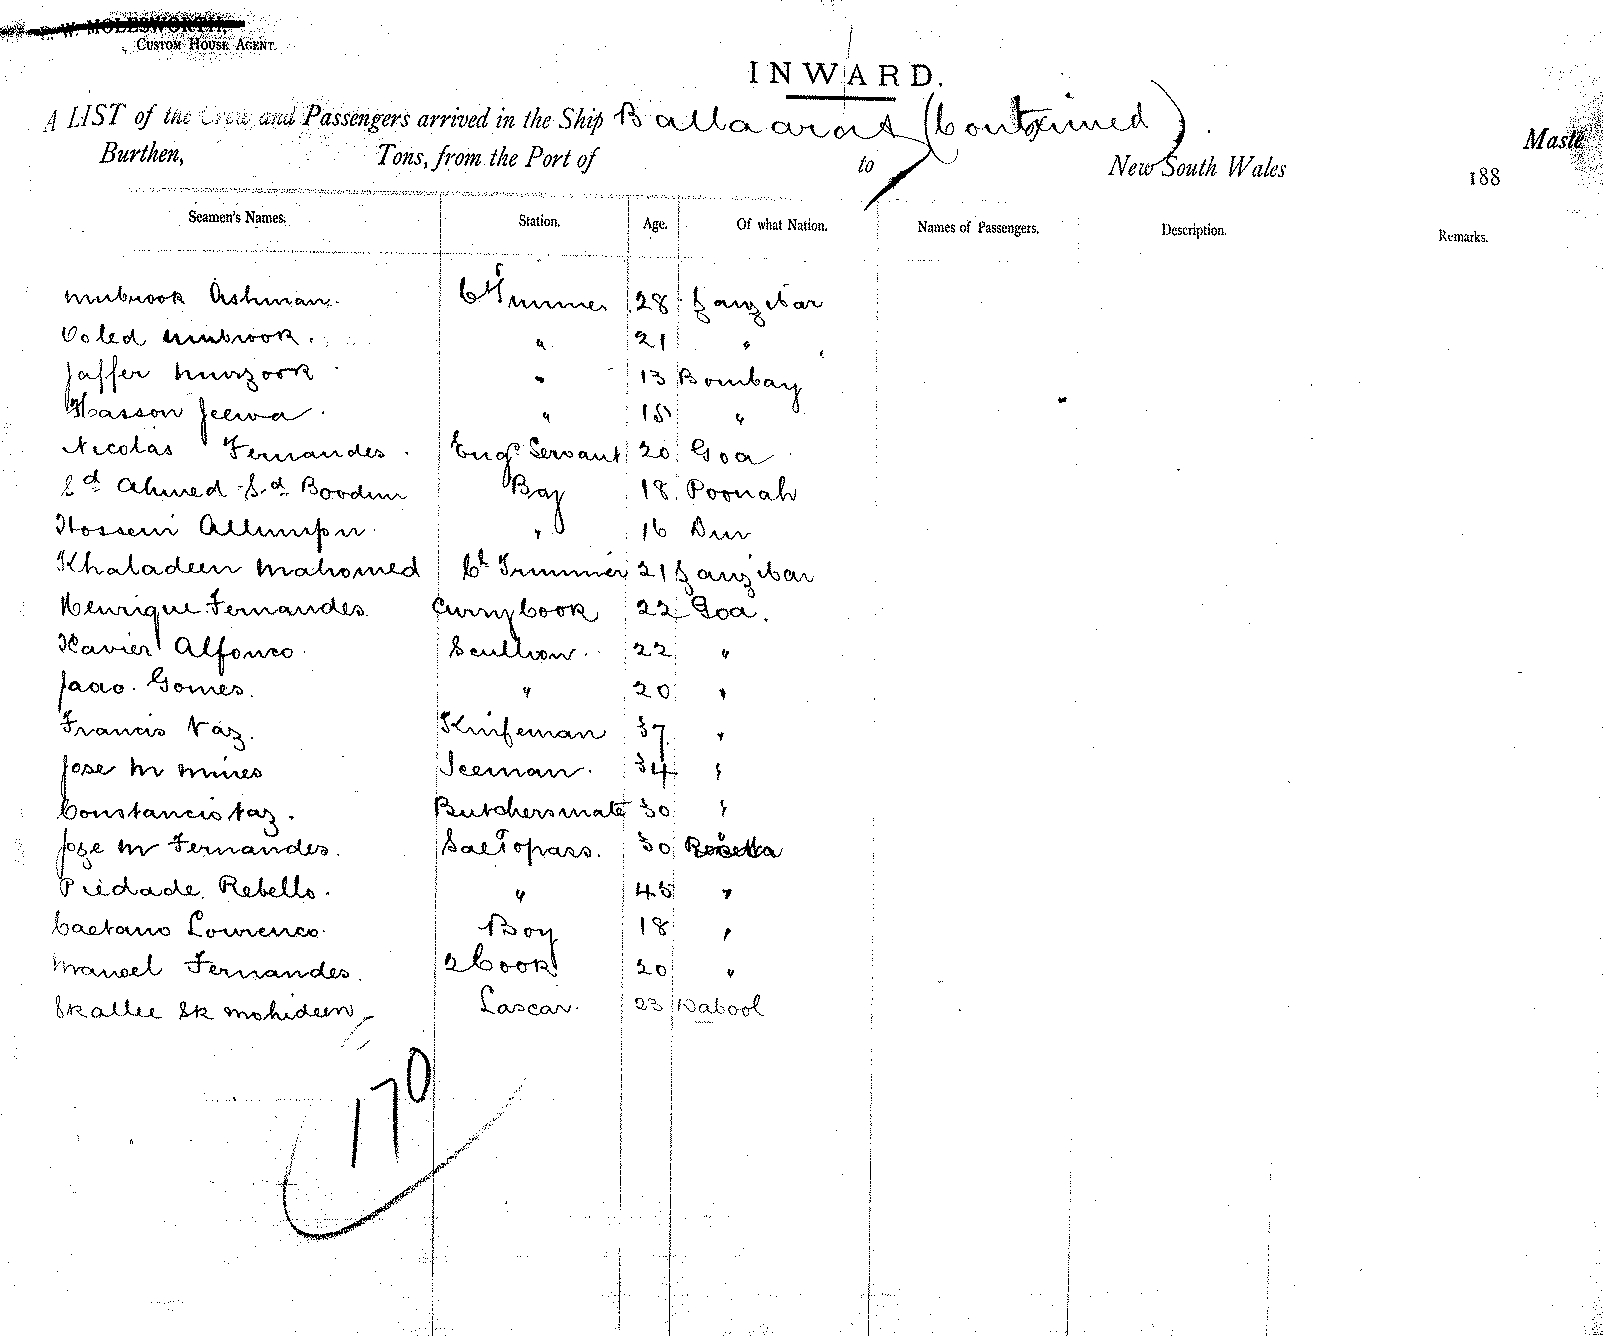 W. MOLESWORTH,
CUSTOM HOUSE AGENT.
INWARD.
A LIST of the Crew and Passengers arrived in the Ship Ballaarat (Continued).
Burthen, Tons, from the Port of to New South Wales 188
Maste
Seamen's Names. Station. Age. Of what Nation. Names of Passengers. Description. Remarks.
Mubrook Ashman. Cl Trimmer 28 Zanzibar
Baled Mubrook. " 21 "
Jaffer Murzook " 13 Bombay
Hasson Jeewa " 15 "
Nicolas Fernandes. Engrs Servant 20 Goa
Sd Ahmed Sd Boodin Boy 18 Poonah
Hossein " 16 Diu
Khaladeen Mahomed Cl Trimmer 21 Zanzibar
Henrique Fernandes Curry Cook 22 Goa.
Xavier Alfonco Scullion 22 "
Jaao. Gomes. " 20 "
Francis Vaz. Knifeman 37 "
Jose M Mines Iceman. 34 "
Constancio Vaz. Butchersmate 30 "
Joze M Fernandes. Sac Topass. 30 "
Piedade Rebello. " 45 "
Caetano Lourenco. Boy 18 "
Manoel Fernandes. 2 Cook 20 "
Sk allee Sk Mohideen Lascar. 23 Dabool
170